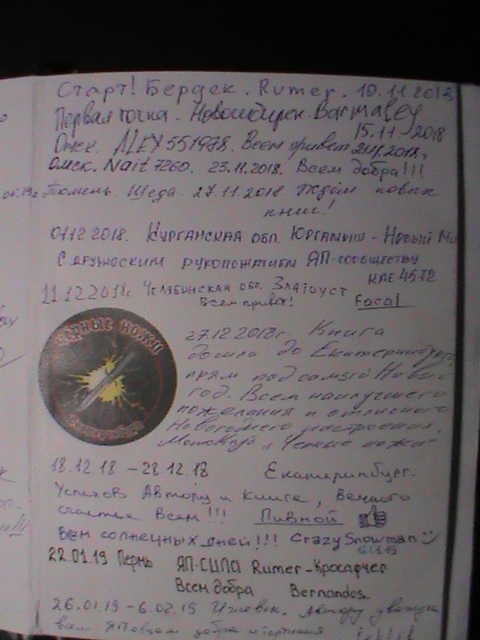 Старт! Бердск. Rumer. 10.11.2018
Первая точка. Новосибирск. Barmaley
15.11.2018
Омск. ALEX551978. Всем привет 2018г
Омск. Nait7260. 23.11.2018. Всем добра!!!
Тюмень. Щеда. 27.11.2018 Ждём новых
книг!
01.12.2018. Курганская обл. Юргамыш - Новый
С дружеским рукопожатием ЯП-сообществу
KAE4572
11.12.2018г. Челябинская обл. Златоуст
Всем привет! Focal
чёрные ножи
Екатеринбург
27.12.2018г. Книга
дошла до Екатеринбурга,
прям под самый Новый
год. Всем наилучшего
пожелания и отличного
Новогоднего настроения.
Мотоклуб "Чёрные ножи"
18.12.18 - 28.12.18 Екатеринбург.
Успехов Автору и книге, Великого
счастья Всем!!! Пивной
Всем солнечных дней!!! CrazySnowman
22.01.19 Пермь ЯП-СИЛА Rumer-Красавчег
Всем добра Bernandos.
26.01.19-6.02.19 Ижевск. Автору
вам ЯПовцам добра и